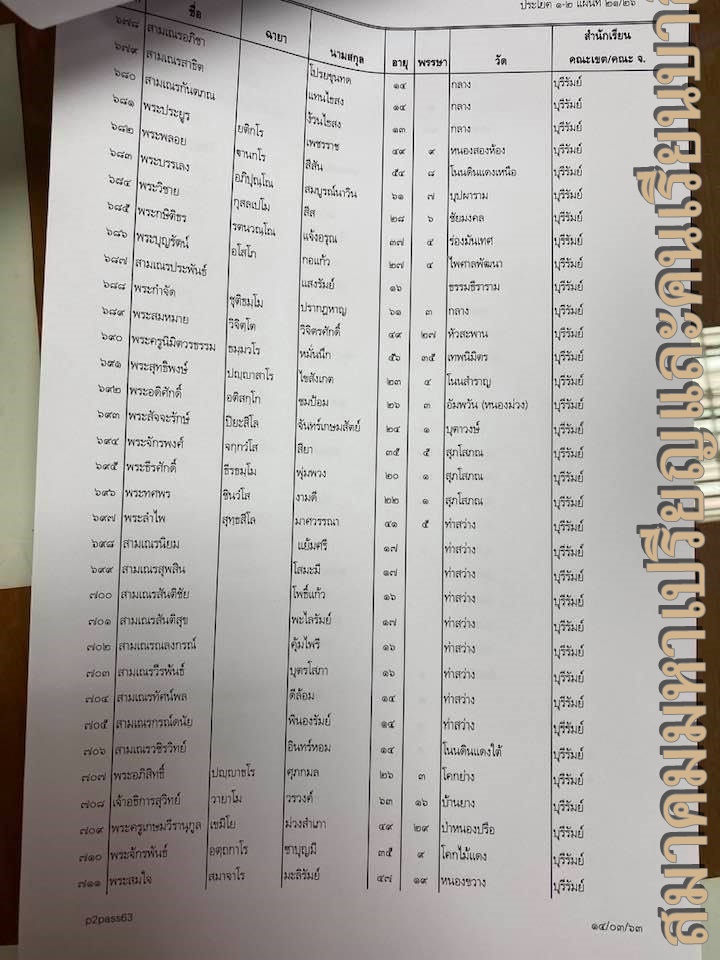 ประโยค ๑-๒ แผ่นที่ ๒๑/๒๖
ชื่อ ฉายา นามสกุล อายุ พรรษา วัด สำนักเรียน คณะเขต/คณะ จ.
๖๗๘ สามเณรอภิชา โปรยขุนทด ๑๔ กลาง บุรีรัมย์
๖๗๙ สามเณรสาธิต แทนไธสง ๑๔ กลาง บุรีรัมย์
๖๘๐ สามเณรกันตภณ ง้วนไธสง ๑๓ กลาง บุรีรัมย์
๖๘๑ พระประยูร ยติกโร เพชรราช ๔๙ ๙ หนองสองห้อง บุรีรัมย์
๖๘๒ พระพลอย ฐานกโร สีสัน ๕๔ ๘ โนนดินแดงเหนือ บุรีรัมย์
๖๘๓ พระบรรเลง อภิปุณฺโณ สมบูรณ์นาวิน ๖๑ ๗ บุปผาราม บุรีรัมย์
๖๘๔ พระวิชาย กุสลเปโม สีส ๒๘ ๖ ชัยมงคล บุรีรัมย์
๖๘๕ พระกษิติธร รตนวณฺโณ แจ้งอรุณ ๓๗ ๔ ร่องมันเทศ บุรีรัมย์
๖๘๖ พระบุญรัตน์ อโสโก กอแก้ว ๒๗ ๔ ไพศาลพัฒนา บุรีรัมย์
๖๘๗ สามเณรประพันธ์ แสงรัมย์ ๑๖ ธรรมธีราราม บุรีรัมย์
๖๘๘ พระกำจัด ชุติธมฺโม ปรากฎหาญ ๖๑ ๓ กลาง บุรีรัมย์
๖๘๙ พระสมหมาย วิจิตฺโต วิจิตรศักดิ์ ๔๙ ๒๗ หัวสะพาน บุรีรัมย์
๖๙๐ พระครูนิมิตวรธรรม ธมฺมวโร หมั่นนึก ๕๖ ๓๕ เทพนิมิตร บุรีรัมย์
๖๙๑ พระสุทธิพงษ์ ปญฺญาสาโร ไขสังเกต ๒๓ ๔ โนนสำราญ บุรีรัมย์
๖๙๒ พระอดิศักดิ์ อติสกฺโก ชมป้อม ๒๖ ๓ อัมพวัน (หนองม่วง) บุรีรัมย์
๖๙๓ พระสัจจะรักษ์ ปิยะสีโล จันทร์เกษมสัตย์ ๒๔ ๑ บุตาวงษ์ บุรีรัมย์
๖๙๔ พระจักรพงศ์ จกฺกวํโส สียา ๓๕ ๕ สุภโสภณ บุรีรัมย์
๖๙๕ พระธีรศักดิ์ ธีรธมฺโม พุ่มพวง ๒๐ ๑ สุภโสภณ บุรีรัมย์
๖๙๖ พระทศพร ชินวํโส งามดี ๒๒ ๑ สุภโสภณ บุรีรัมย์
๖๙๗ พระลำไพ สุทฺธสีโล มาศวรรณา ๔๑ ๕ ท่าสว่าง บุรีรัมย์
๖๙๘ สามเณรนิยม แย้มศรี ๑๗ ท่าสว่าง บุรีรัมย์
๖๙๙ สามเณรสุพสิน โสมะมี ๑๗ ท่าสว่าง บุรีรัมย์
๗๐๐ สามเณรสันติชัย โพธิ์แก้ว ๑๖ ท่าสว่าง บุรีรัมย์
๗๐๑ สามเณรสันติสุข พะไลรัมย์ ๑๗ ท่าสว่าง บุรีรัมย์
๗๐๒ สามเณรณลงกรณ์ คุ้มไพรี ๑๖ ท่าสว่าง บุรีรัมย์
๗๐๓ สามเณรวีรพันธ์ บุตรโสภา ๑๖ ท่าสว่าง บุรีรัมย์
๗๐๔ สามเณรทัศน์พล ดีล้อม ๑๔ ท่าสว่าง บุรีรัมย์
๗๐๕ สามเณรกรณ์ดนัย พินองรัมย์ ๑๔ ท่าสว่าง บุรีรัมย์
๗๐๖ สามเณรวชิรวิทย์ อินทร์หอม ๑๔ โนนดินแดงใต้ บุรีรัมย์
๗๐๗ พระอภิสิทธิ์ ปญฺญาธโร ศุภกมล ๒๖ ๓ โคกย่าง บุรีรัมย์
๗๐๘ เจ้าอธิการสุวิทย์ วายาโม วรวงค์ ๖๓ ๑๖ บ้านยาง บุรีรัมย์
๗๐๙ พระครูเกษมวีรานุกูล เขมิโย ม่วงสำเภา ๔๙ ๒๙ ป่าหนองปรือ บุรีรัมย์
๗๑๐ พระจักรพันธ์ อตฺถกาโร ชาบุญมี ๓๕ ๙ โคกไม้แดง บุรีรัมย์
๗๑๑ พระสมใจ สมาจาโร มะลิรัมย์ ๔๗ ๑๙ หนองขวาง บุรีรัมย์
p2pass63 ๑๔/๐๓/๖๓
สมาคมมหาเปรียญและคนเรียนบาลี